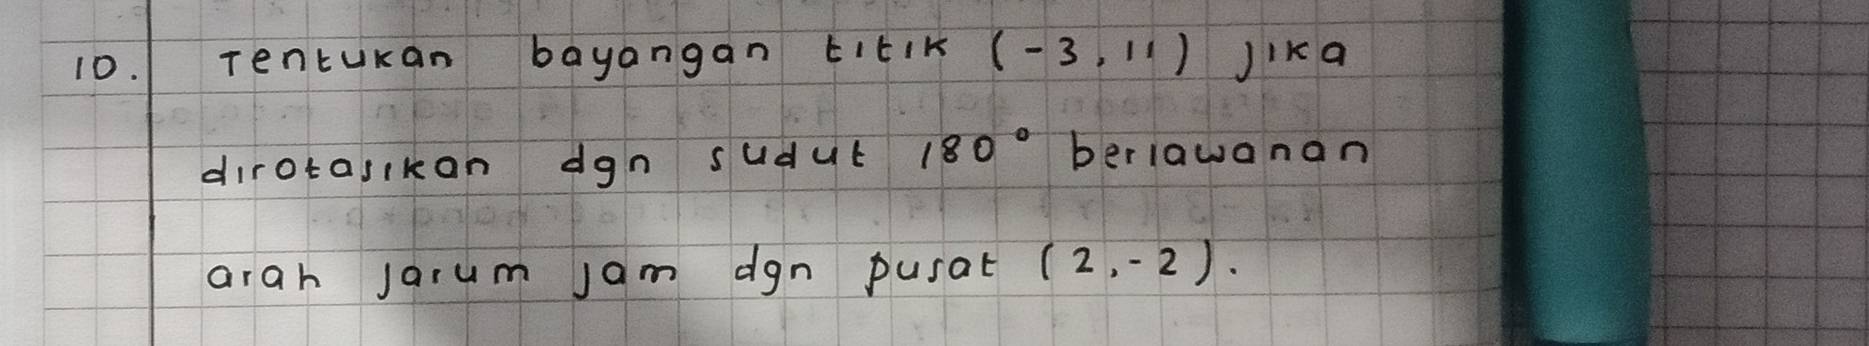 10. Tentukan bayangan titik (-3, 11) jika
dirotasikan dgn sudut 180° berlawanan
arah jarum jam dgn pusat (2, -2).